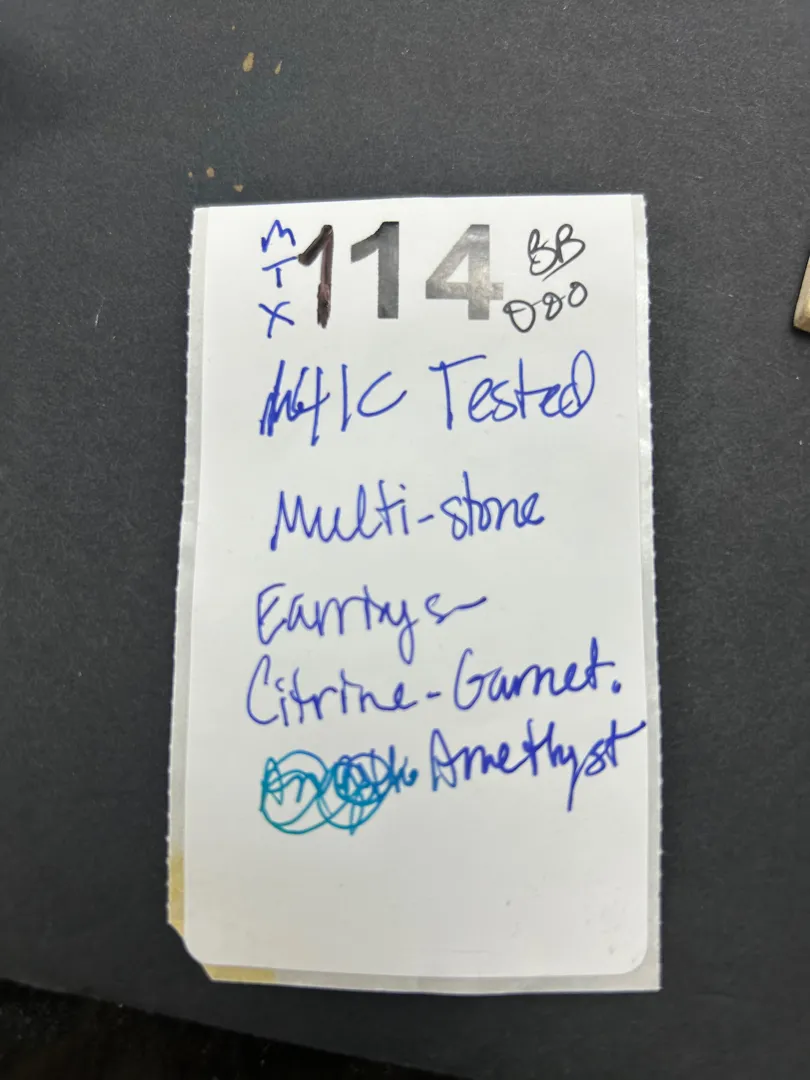 M
T
X
114
BB
000
14K Tested
Multi-stone
Earrings
Citrine-Garnet.
Amethyst